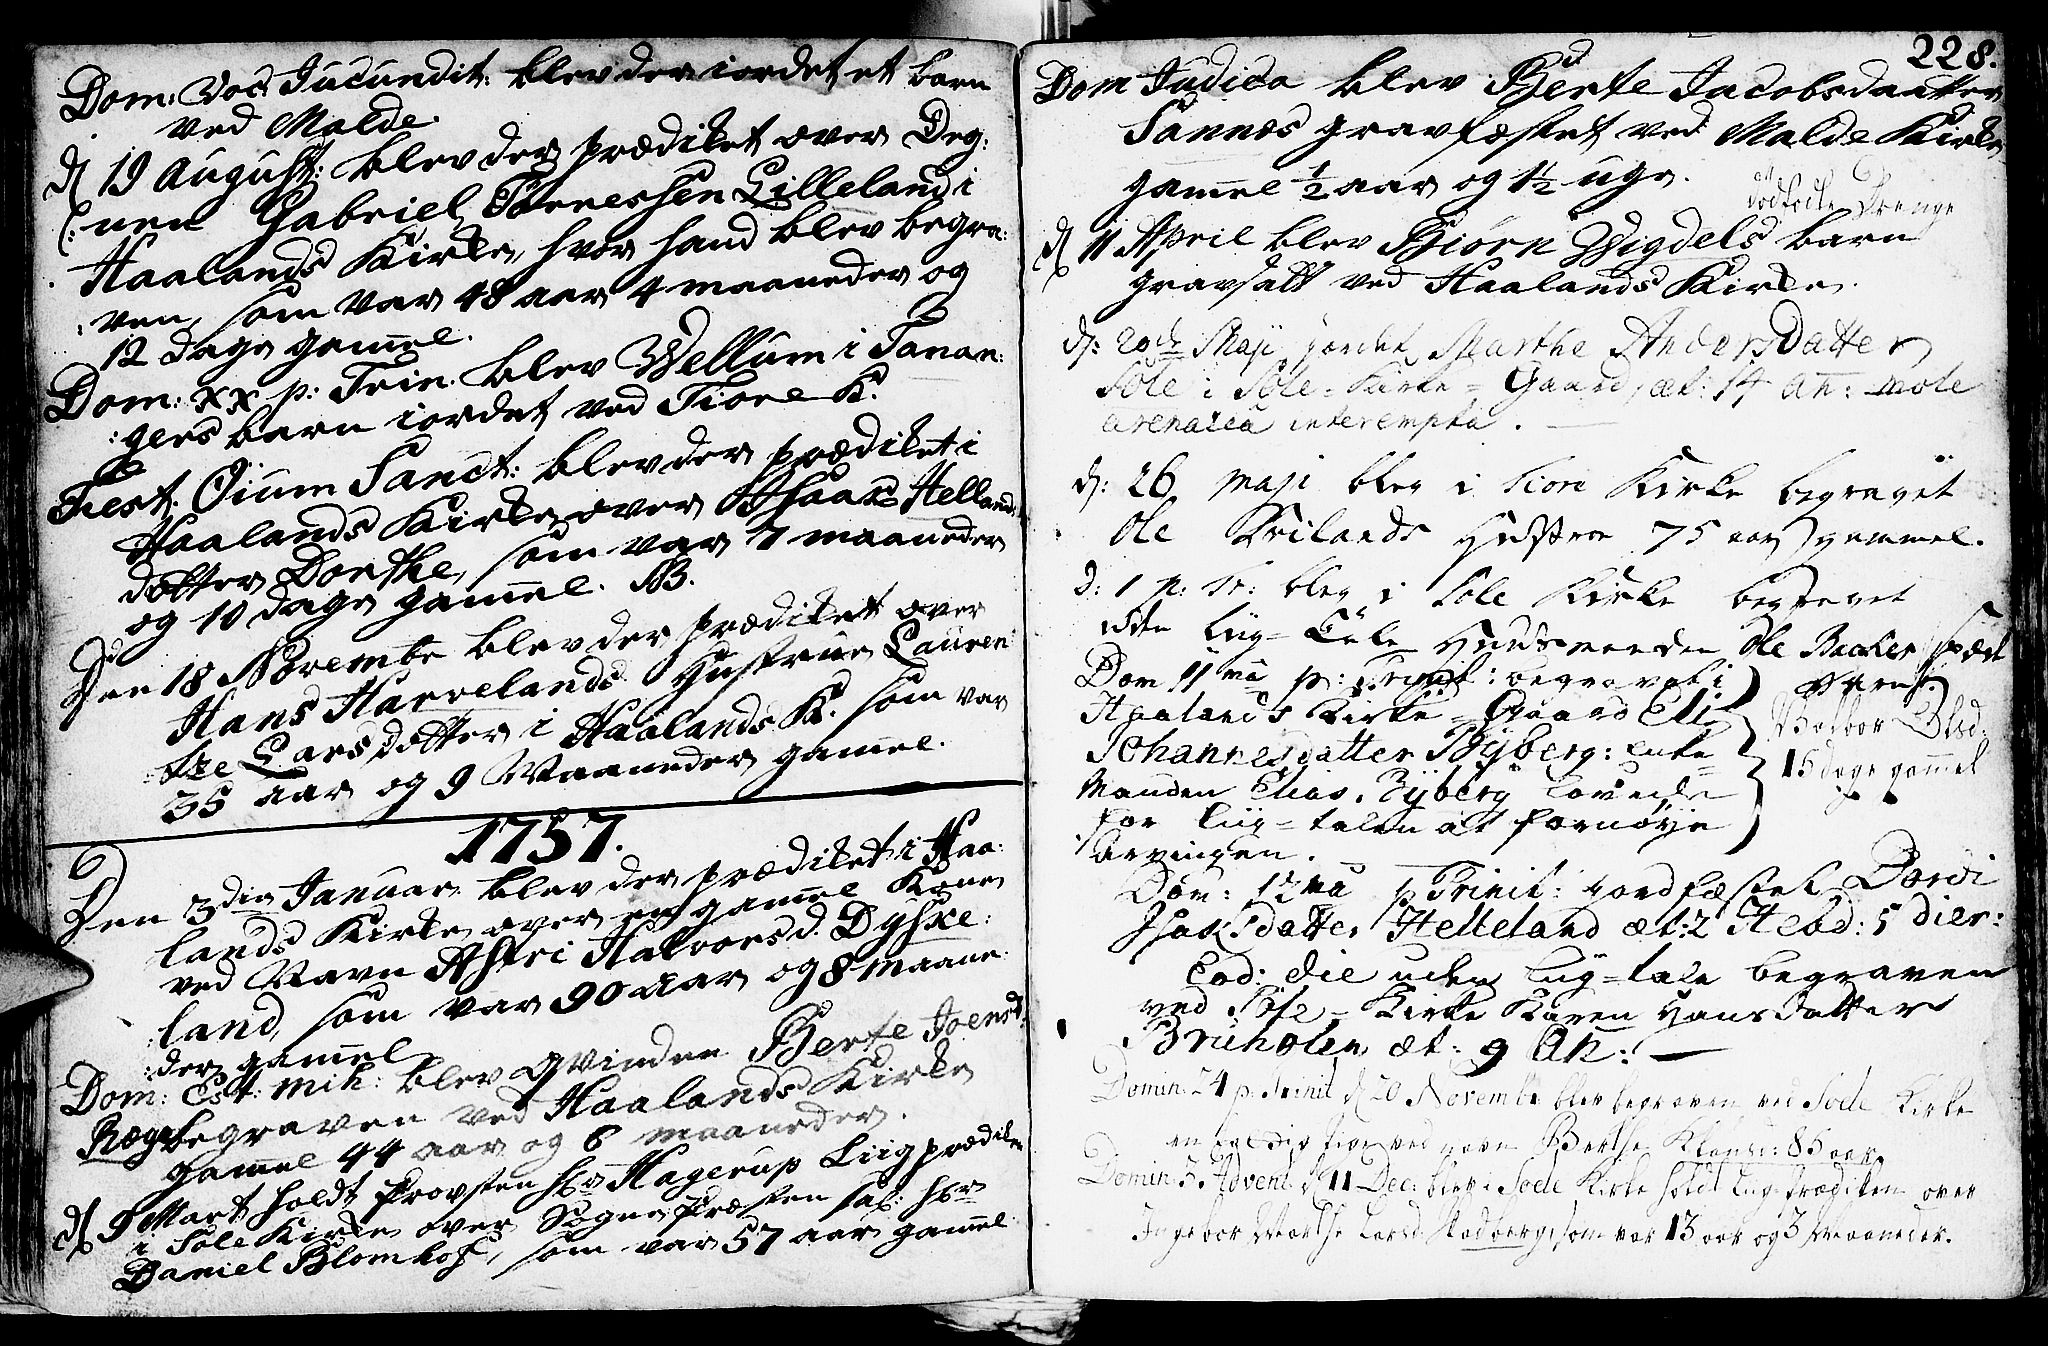 Dom: Voc Jucundit: blev der iordet et barn
ved Malde.
d 19 August: blev der prædiket over Deg:
(: nen Gabriel Tørressen Lilleland i
Haalands Kirke, hvor hand blev begra:
: ven, som var 48 aar 4 maaneder og
12 dage gamel.
Dom: XX p: Trin. blev Wellum i Tanan:
: gers barn iordet ved Tiore K.
Fest: Oium Sanct: blev der prædiket i
Haalands Kirke over Isaac Hellands
datter Dorthe, som var 7 maaneder
og 10 dage gamel. NB.
Den 18 Novembr blev der prædiket over
Hans Harvelands Hustrue Lauren
: tze Larsdatter i Haalands K. som var
35 aar og 9 Maaneder gamel.
1757.
Den 3die Januar blev der prædiket i Haa:
lands Kirke over en gamel Kone
ved Navn Astri Halvorsd. Dyske:
: land, som var 90 aar og 8 maane:
: der gamel
Dom: Est: mih: blev qvinden Berte Joensd:
Ræge begraven ved Haalands Kirke
gamel 44 aar og 6 maaneder.
d 9 Mart holdt Provsten Hr Hagerup Liigprædiken
i Sole Kirke over Sogne Præsten sal: Hr
Daniel Blomhof, som var 57 aar gamel
228.
Dom Judica blev Berte Jacobsdaatter
Sannes gravfæstet ved Malde Kirke
gamel ½ aar og 1½ uge.
et
dødfødte Drenge
d 11 April blev Biørn Wigdels barn
gravsatt ved Haalands Kirke.
d: 20de Maji jordet Marthe AndersDatter
Sole i Sole-Kirke-Gaard, æt: 14 an: mole
arenacea interempta.
d: 26 Maji blev i Tiore Kirke begravet
Ole Hustroe 75 aar gammel.
d: 1 p: Tr: blev i Sole Kirke begravet
uden Liig-Tale Huusmanden Ole
Dom 11ma p: Trinit: begravet i
Haalands Kirke-Gaard Eli
Johannesdatter Bÿberg: Enke
Manden Elias Bÿberg lovede
for Liig-talen at fornøye
Arvingen.
15 dage gamel
Dom: 12ma p Trinit: jordfæstet Dordi
Isaksdatter Helleland æt: 2 Hebd: 5 dier:
Eod: die uden Liig-tale begraven
ved Sole-Kirke Karen Hansdatter
Bruholen æt: 9 An:
Domin: 24 p. Trinit d 20 Novembr blev begraven ved Soele Kirke
en ved navn Berthe Klausd: 86 aar
Domin: 3 Advent d 11 Dec: blev i Soele Kirke holdt Liig-Prædiken over
Ingebor Marthe Larsd. som var 13 aar og 3 Maaneder.